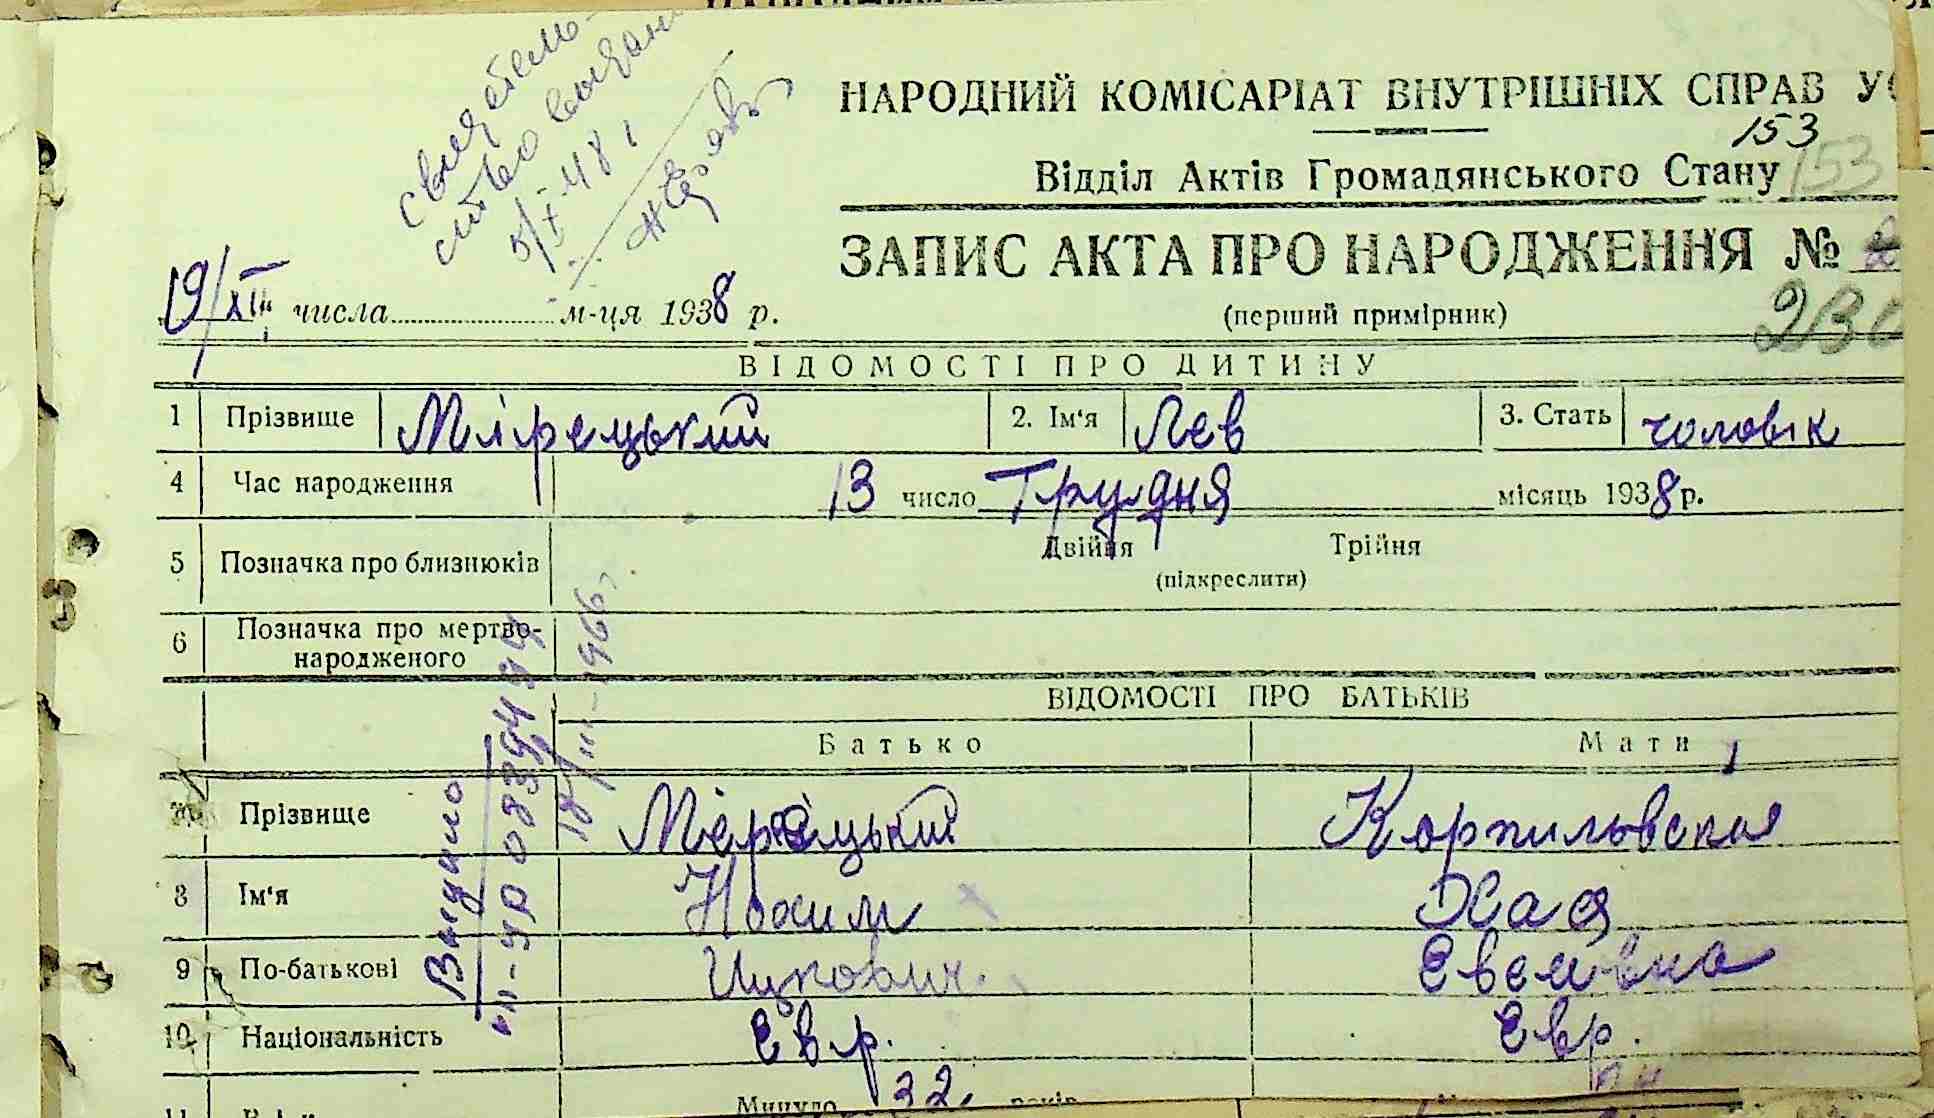 свидетель-
ство выдано
5/X-48 г
НАРОДНИЙ КОМІСАРІАТ ВНУТРІШНІХ СПРАВ
153
Відділ Актів Громадянського Стану 153
ЗАПИС АКТА ПРО НАРОДЖЕННЯ №
19/XII числа м-ця 1938 р.
(перший примірник)
ВІДОМОСТІ ПРО ДИТИНУ
1 Прізвище Мірецький 2. Ім‘я Лев 3. Стать чоловік
4 Час народження 13 число Грудня місяць 1938 р.
5 Позначка про близнюків Двійня Трійня
(підкреслити)
6 Позначка про мертво-
народженого
ВІДОМОСТІ ПРО БАТЬКІВ
Батько Мати
Прізвище Мірецький Корпиловская
8 Ім‘я Нохим Хая
9 По-батькові Ицкович Евсеивна
10 Національність Евр. Евр.
Видано
18/III-1966 г.
11 Минуло 32 років